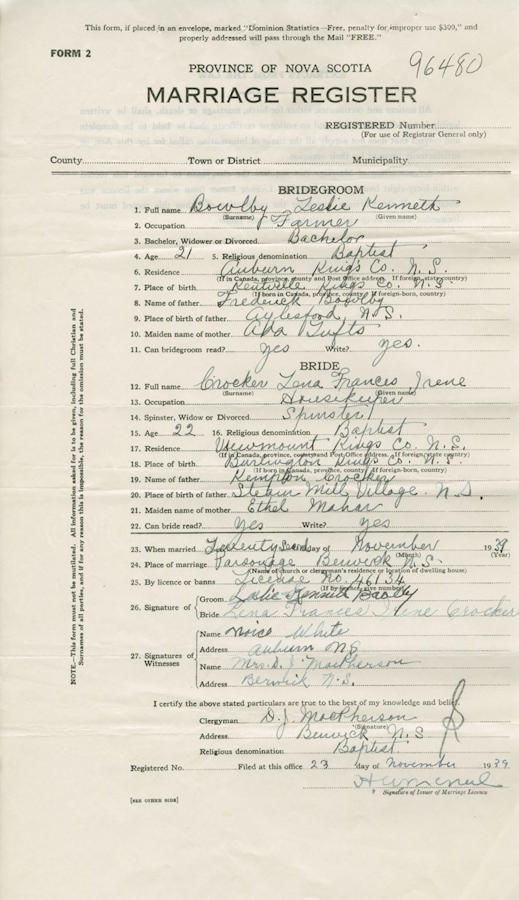 This form, if placed in an envelope, marked "Dominion Statistics—Free, penalty for improper use $300," and
properly addressed will pass through the Mail "FREE."
FORM 2
96480
PROVINCE OF NOVA SCOTIA
MARRIAGE REGISTER
REGISTERED Number
(For use of Registrar General only)
County Town or District Municipality
BRIDEGROOM
1. Full name Bowlby Leslie Kenneth
(Surname) (Given name)
2. Occupation Farmer
3. Bachelor, Widower or Divorced Bachelor
4. Age 21 5. Religious denomination Baptist
6. Residence Auburn King's Co. N.S.
(If in Canada, province, county and Post Office address. If foreign, state country)
7. Place of birth Kentville Kings Co. N.S.
(If born in Canada, province, county. If foreign-born, country)
8. Name of father Frederick Bowlby
9. Place of birth of father Aylesford, N.S.
10. Maiden name of mother Ada Tufts
11. Can bridegroom read? Yes Write? yes.
BRIDE
12. Full name Crocker Lena Frances Irene
(Surname) (Given name)
13. Occupation Housekeeper
14. Spinster, Widow or Divorced Spinster
15. Age 22 16. Religious denomination Baptist
17. Residence Viewmount Kings Co. N.S.
(If in Canada, province, county and Post Office address. If foreign, state country)
18. Place of birth Burlington Kings Co. N.S.
(If born in Canada, province, county. If foreign-born, country)
19. Name of father Kempton Crocker
20. Place of birth of father Steam Mill Village N.S.
21. Maiden name of mother Ethel Mahar
22. Can bride read? Yes Write? yes
23. When married Twenty day of November 1939
(Month) (Year)
24. Place of marriage Parsonage Berwick N.S.
(Name of church or clergyman's residence or location of dwelling house)
25. By licence or banns License No. 46134
(If by licence, give number)
Groom Leslie Kenneth
26. Signature of
Bride Lena Frances Irene Crocker
Name White
Address Auburn NS
27. Signatures of Witnesses
Name Mrs. D. J. MacPherson
Address Berwick N.S.
I certify the above stated particulars are true to the best of my knowledge and belief.
Clergyman D. J. MacPherson
(Signature)
Address Berwick N.S
Religious denomination Baptist
Registered No. Filed at this office 23 day of November 1939
Signature of Issuer of Marriage Licence
[SEE OTHER SIDE]
NOTE.—This form must not be mutilated. All information asked for is to be given, including full Christian and
Surnames of all parties, and if for any reason this is impossible, the reason for the omission must be stated.